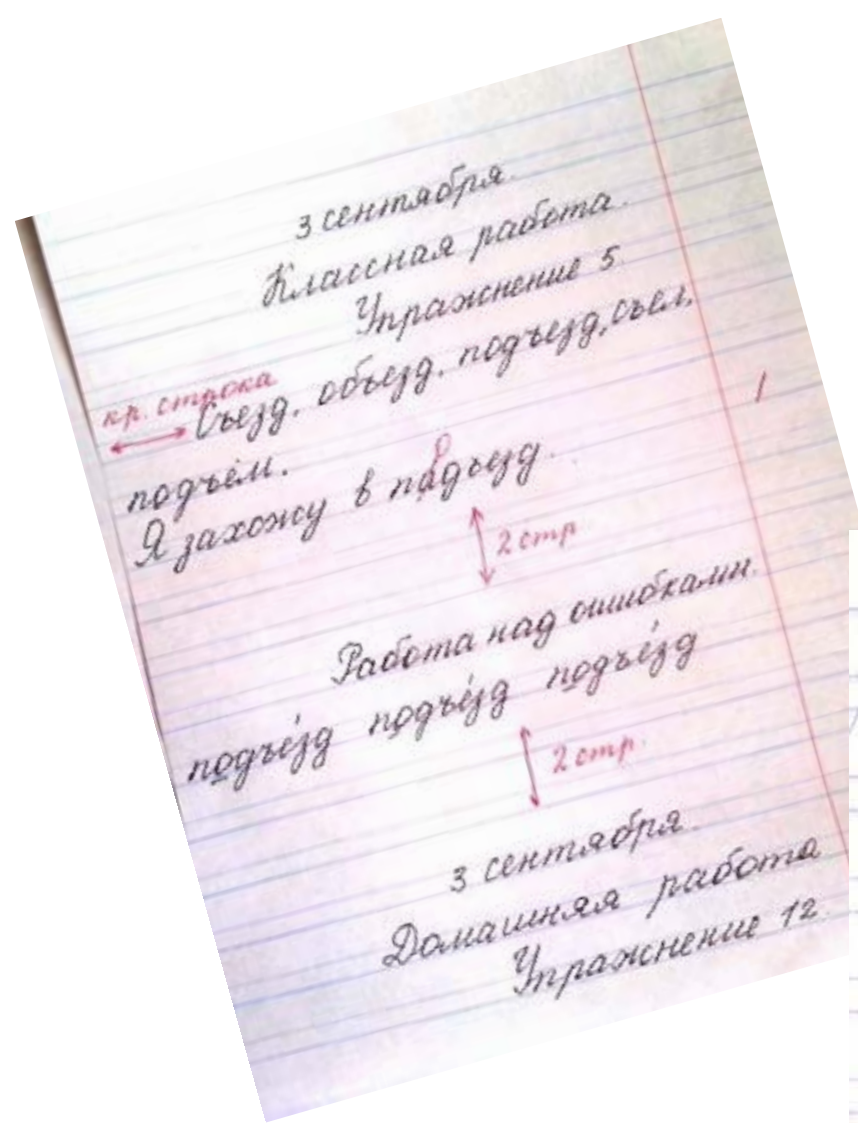 3 сентября.
Классная работа.
Упражнение 5
кр. строка
Съезд, объезд, подъезд, съел,
подъём.
Я захожу в падъезд.
о
/
2 стр
Работа над ошибками.
подъе́зд подъе́зд подъе́зд
2 стр.
3 сентября.
Домашняя работа
Упражнение 12.